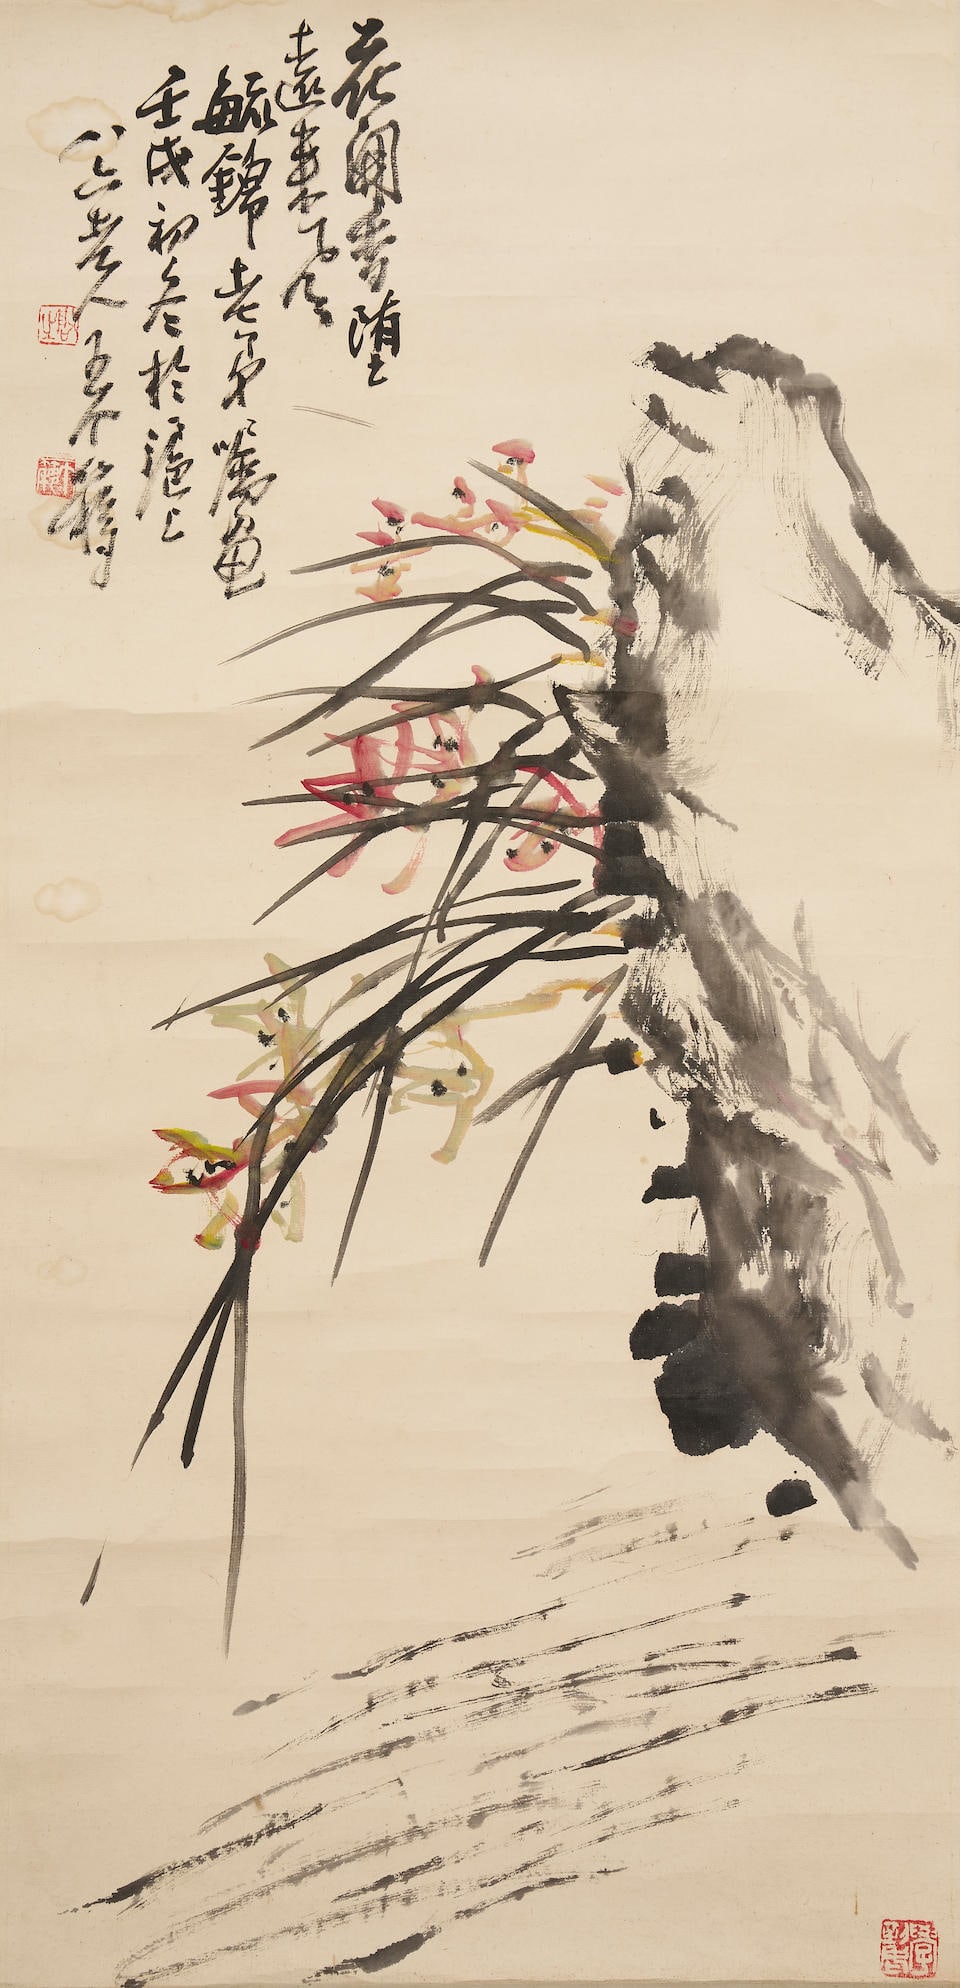 花開香墮
遠來風
毓錦老弟囑畫
壬戌初冬於滬上
八六老人王个簃